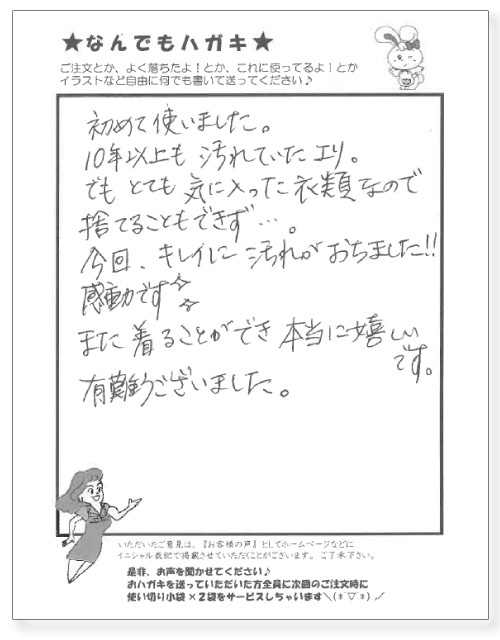 ★なんでもハガキ★
ご注文とか、よく落ちたよ！とか、これに使ってるよ！とか
イラストなど自由に何でも書いて送ってください♪
初めて使いました。
10年以上も 汚れていたエリ。
でも とても 気に入った衣類なので
捨てることもできず…。
今回、キレイに 汚れが おちました!!
感動です☆☆
また 着ることができ 本当に嬉しい
です。
有難うございました。
いただいたご意見は、『お客様の声』としてホームページなどに
イニシャル表記で掲載させていただくことがございます。ご了承下さい。
是非、お声を聞かせてください♪
おハガキを送っていただいた方全員に次回のご注文時に
使い切り小袋×２袋をサービスしちゃいます＼(*´▽`*)／